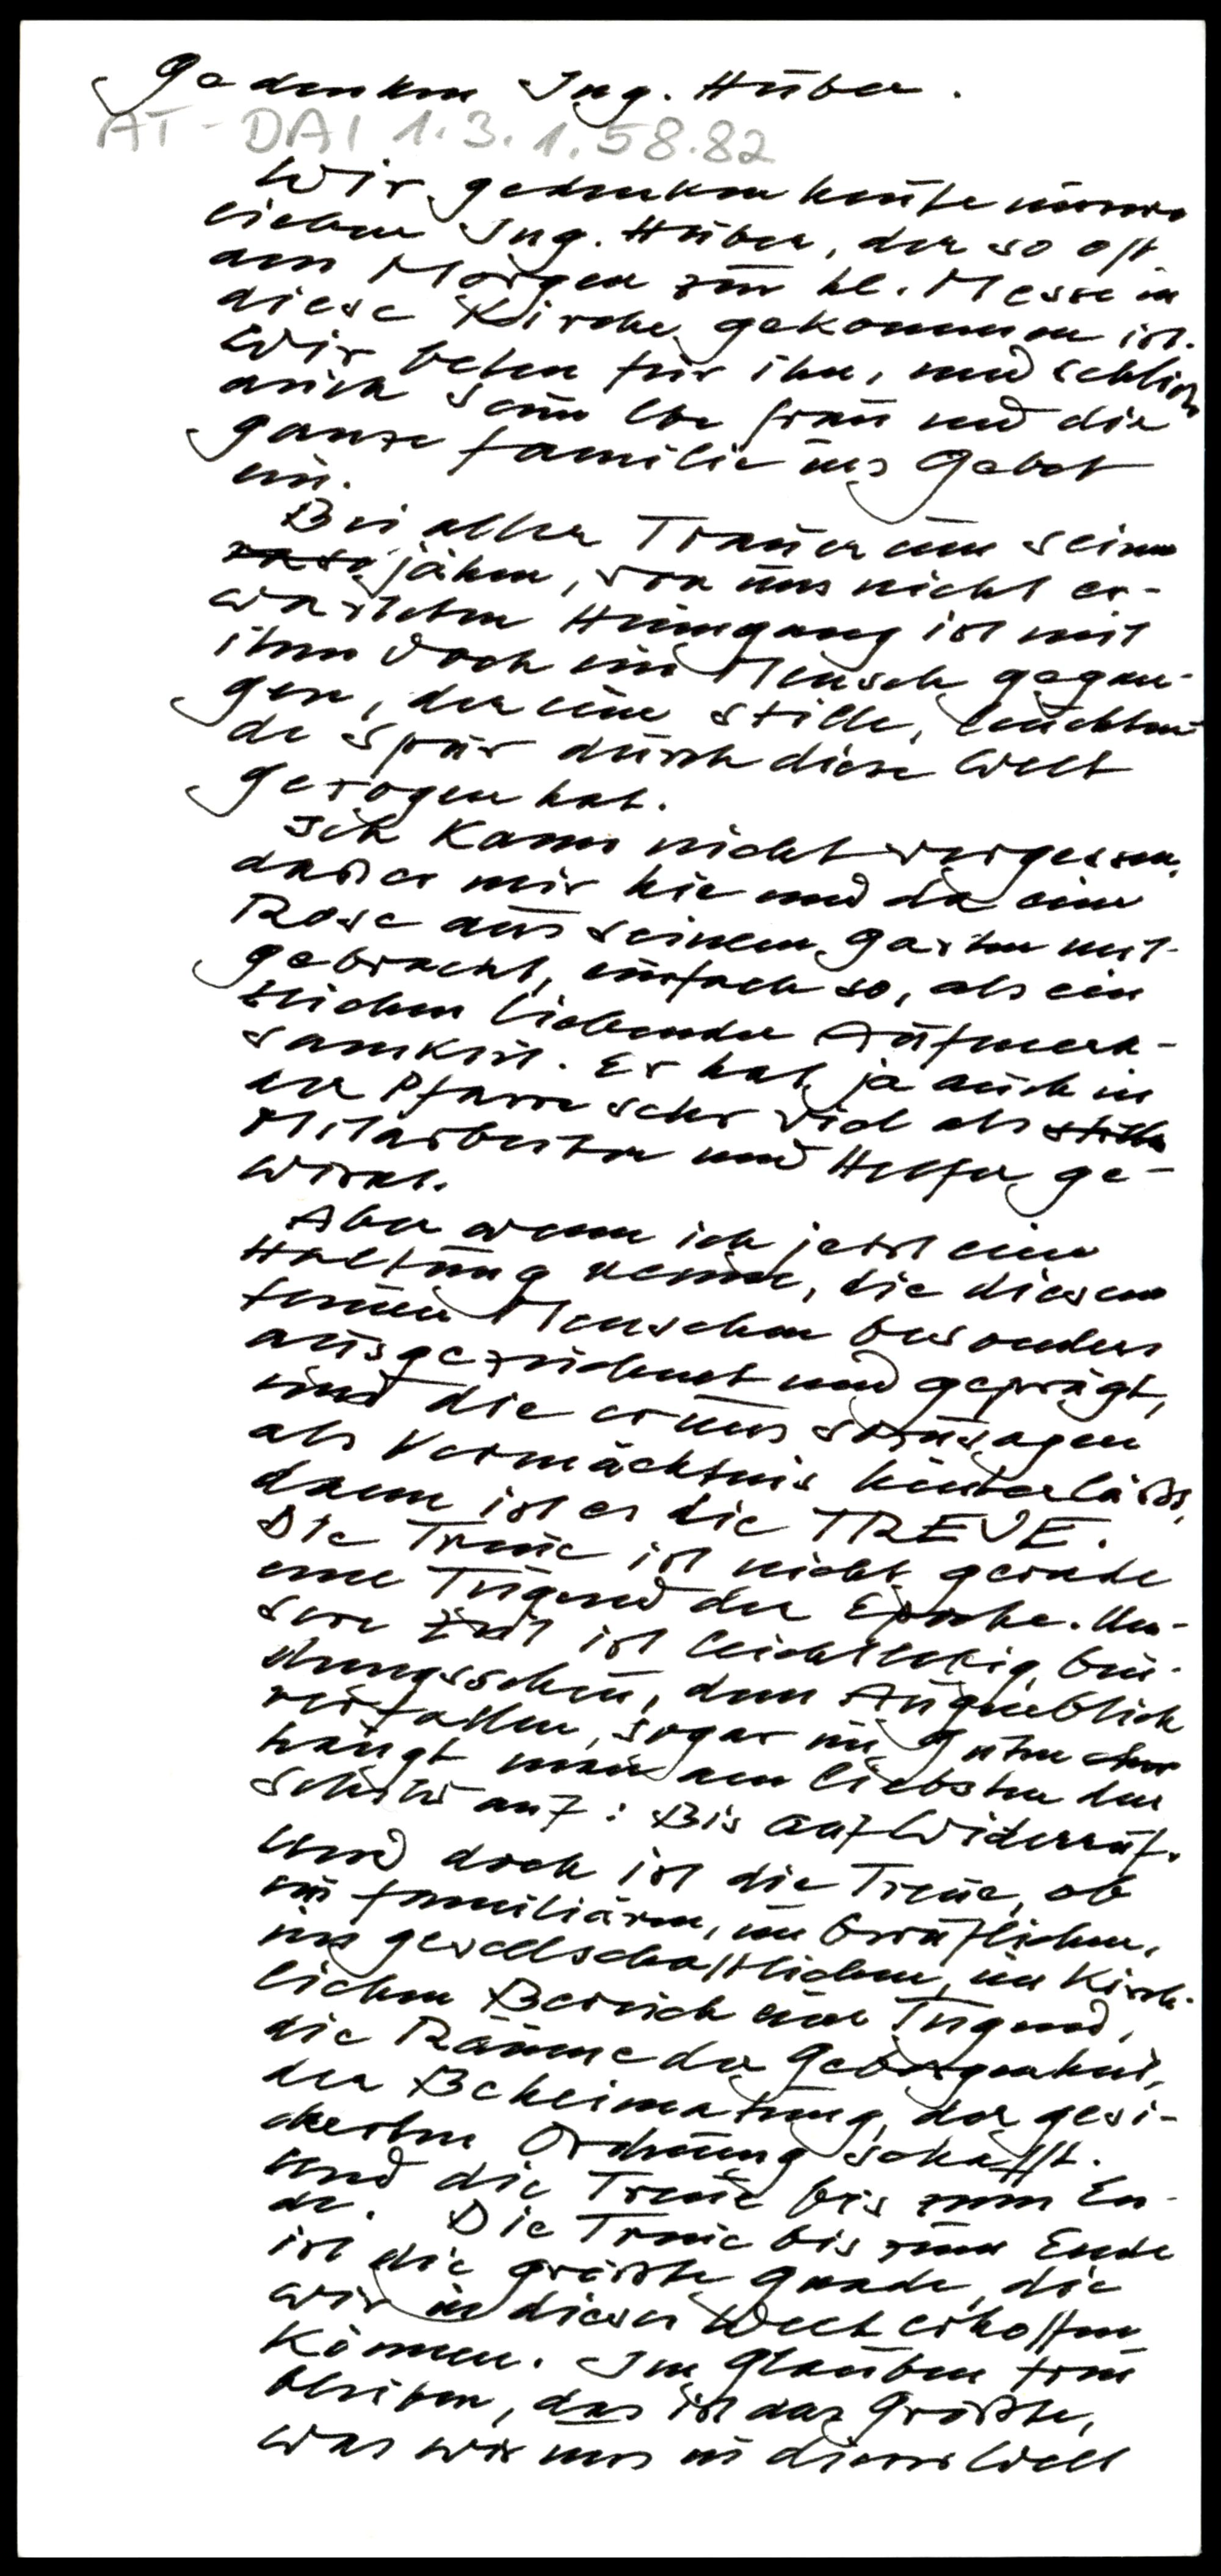 Gedenken Ing. Huber.
AT-DAI 1.3.1.58.82
Wir gedenken heute unseres
lieben Ing. Huber, der so oft
am Morgen zur hl. Messe in
diese Kirche gekommen ist.
Wir beten für ihn, und schließen
auch seine lbe Frau und die
ganze Familie ins Gebet
ein.
Bei aller Trauer um seinen
jähen, von uns nicht er-
warteten Heimgang ist mit
ihm doch ein Mensch gegan-
gen, der eine stille, leuchten-
de Spur durch diese Welt
gezogen hat.
Ich kann nicht vergessen,
daß er mir hie und da eine
Rose aus seinem Garten mit-
gebracht, einfach so, als ein
Zeichen liebender Aufmerk-
samkeit. Er hat ja auch in
der Pfarre sehr viel als stiller
Mitarbeiter und Helfer ge-
wirkt.
Aber wenn ich jetzt eine
Haltung nenne, die diesen
teuren Menschen besonders
ausgezeichnet und geprägt,
und die er uns sozusagen
als Vermächtnis hinterläßt,
dann ist es die TREUE.
Die Treue ist nicht gerade
eine Tugend der Epoche. Un-
sere Zeit ist leichtlebig, bin-
dungsscheu, dem Augenblick
verfallen, sogar im Guten
hängt man am liebsten das
Schild auf: Bis auf Widerruf.
Und doch ist die Treue, ob
im familiären, im beruflichen,
im gesellschaftlichen, im kirch-
lichen Bereich eine Tugend,
die Räume der Geborgenheit,
der Beheimatung, der gesi-
cherten Ordnung schafft.
Und die Treue bis zum En-
de. Die Treue bis zum Ende
ist die größte Gnade, die
wir in dieser Welt erhoffen
können. Im Glauben treu
bleiben, das ist das Größte,
was wir uns in dieser Welt